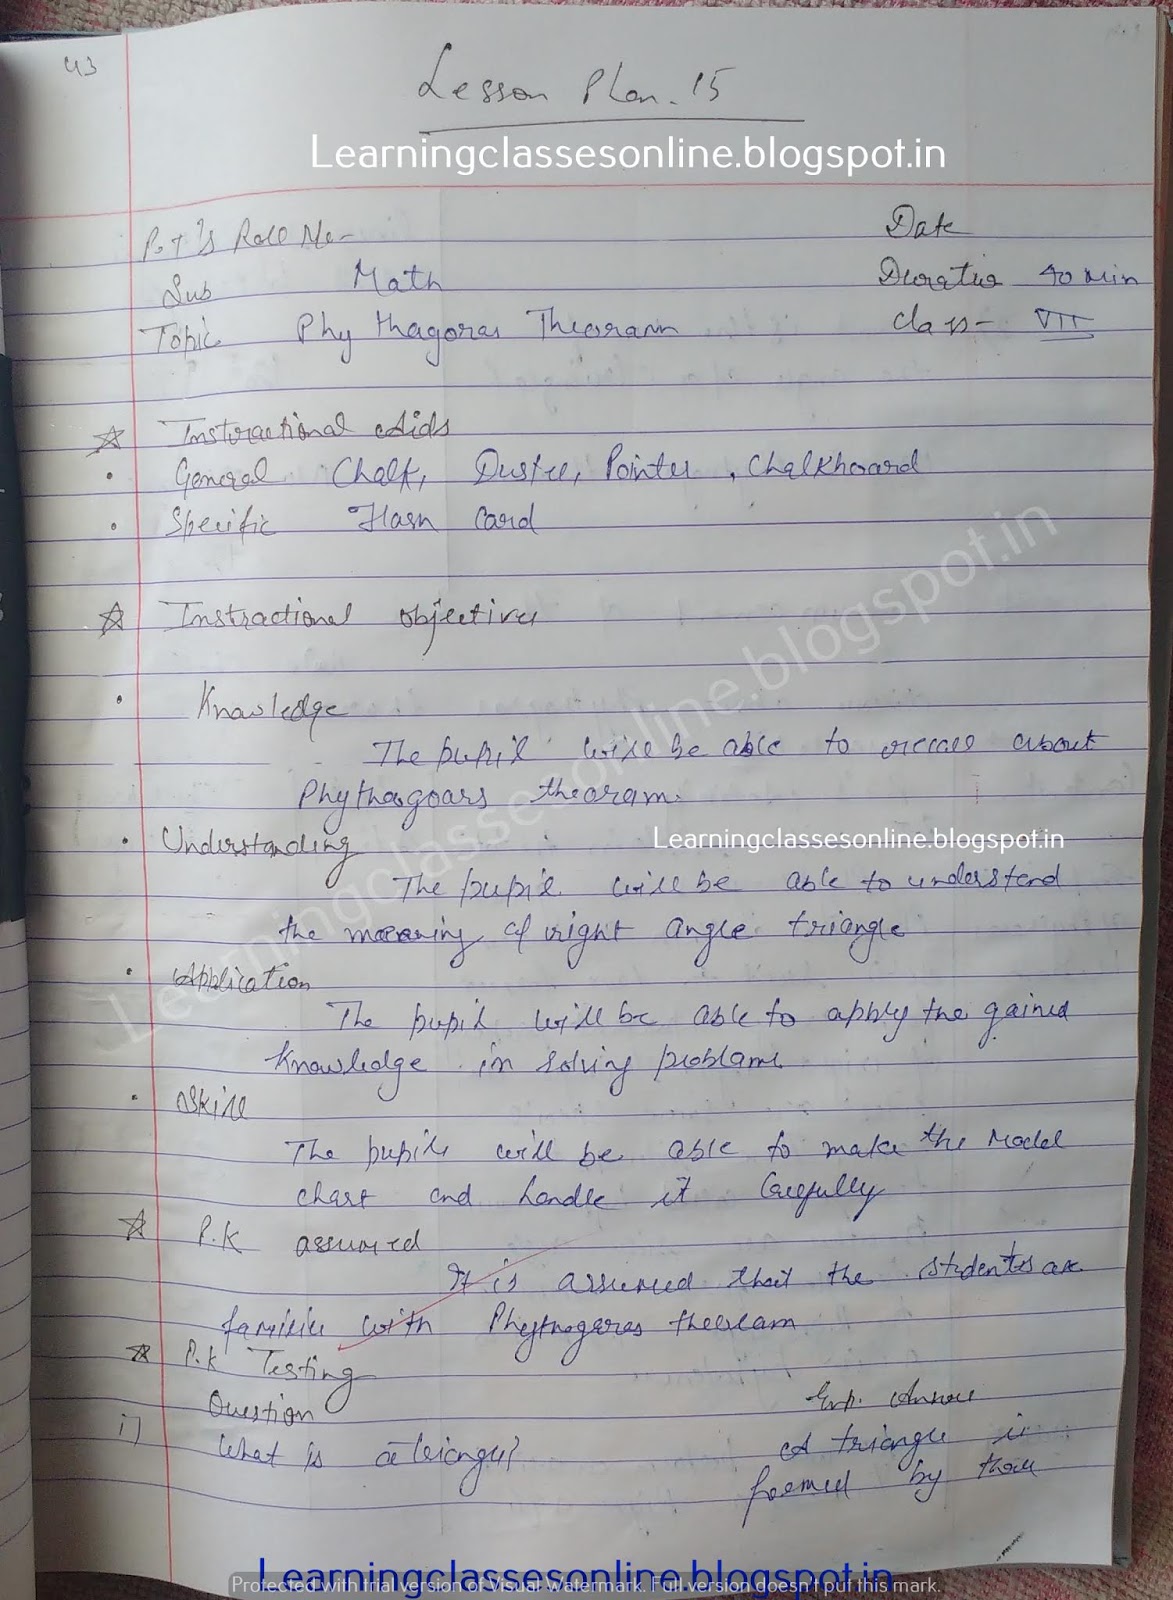 43
Lesson Plan. 15
Learningclassesonline.blogspot.in
P.T's Roll No- Date
Sub Math Duration 40 Min
Topic Phythagoras Thearam Class- VII
Instructional Aids
General Chalk, Duster, Pointer, Chalkboard
Specific Flash Card
Instructional objectives
Knowledge
The pupil will be able to recall about
Phythagoars thearam.
Understanding
Learningclassesonline.blogspot.in
The pupil will be able to understand
the meaning of right angle triangle
Application
The pupil will be able to apply the gained
knowledge in solving problam
Skill
The pupils will be able to make the Model
chart and handle it Carefully
P.K assumed
It is assumed that the students are
familiar with Phythagoras thearam
P.K Testing
Question Exp. Answer
i) What is a triangle? A triangle is
formed by three
Learningclassesonline.blogspot.in
Learningclassesonline.blogspot.in
Protected with trial version of Visual Watermark. Full version doesn't put this mark.